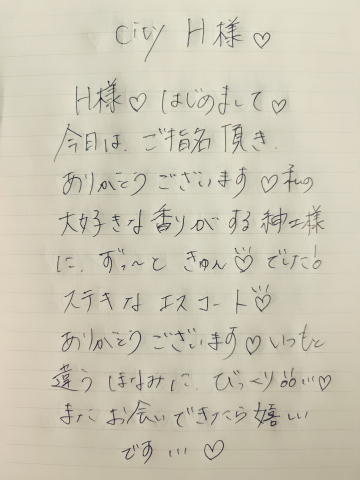 City H様♡
H様♡はじめまして♡
今日は、ご指名頂き、
ありがとうございます♡私の
大好きな香りがする紳士様
に、ずっ〜と きゅん♡でした!
ステキなエスコート♡
ありがとうございます♡いつもと
違う ほなみに、びっくり!!…♡
またお会いできたら嬉しい
です…♡